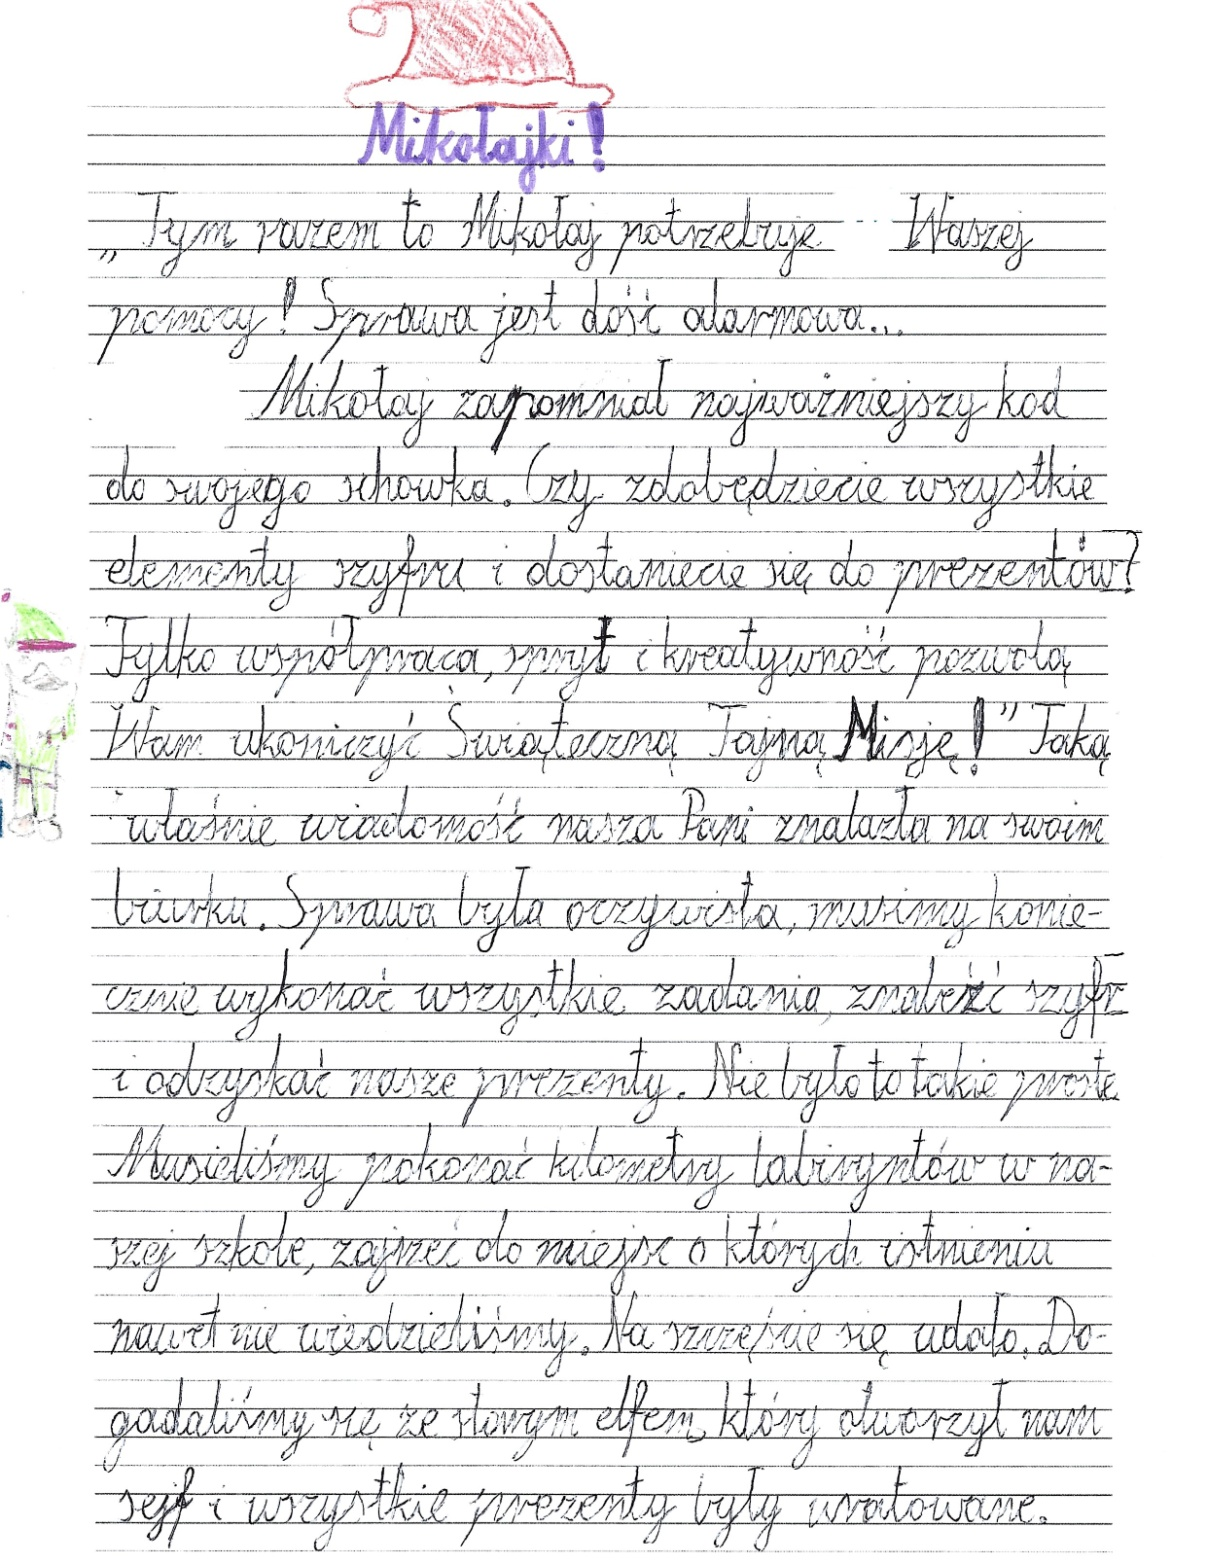 Mikołajki!
„Tym razem to Mikołaj potrzebuje Waszej
pomocy! Sprawa jest dość alarmowa...
Mikołaj zapomniał najważniejszy kod
do swojego schowka. Czy zdobędziecie wszystkie
elementy szyfru i dostaniecie się do prezentów?
Tylko współpraca, spryt i kreatywność pozwolą
Wam ukończyć Świąteczną Tajną Misję!” Taką
właśnie wiadomość nasza Pani znalazła na swoim
biurku. Sprawa była oczywista, musimy konie-
cznie wykonać wszystkie zadania, znaleźć szyfr
i odzyskać nasze prezenty. Nie było to takie proste
Musieliśmy pokonać kilometry labiryntów w na-
szej szkole, zajrzeć do miejsc o których istnieniu
nawet nie wiedzieliśmy. Na szczęście się udało. Do-
gadaliśmy się ze starym elfem, który otworzył nam
sejf i wszystkie prezenty były uratowane.